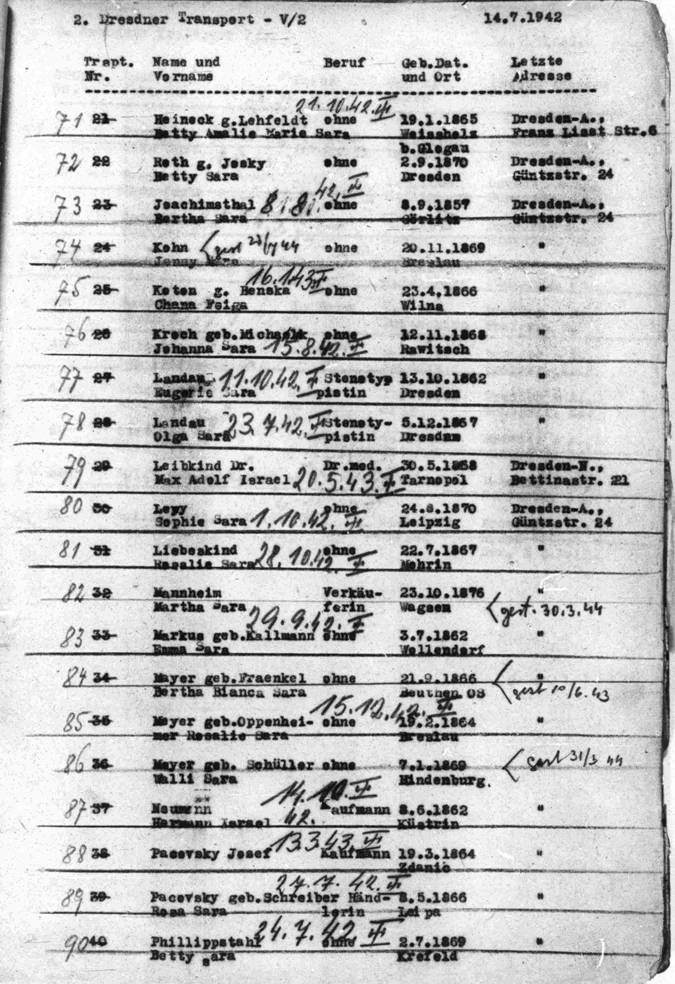 2. Dresdner Transport - V/2 14.7.1942
Trspt. Name und Beruf Geb.Dat. Letzte
Nr. Vorname und Ort Adresse
21.10.42.
71 21 Heineck g.Lehfeldt ohne 19.1.1865 Dresden-A.,
Betty Amalie Marie Sara Weissholz Franz Liszt Str.6
b.Glogau
72 22 Roth g. Jesky ohne 2.9.1870 Dresden-A.,
Betty Sara Dresden Güntzstr. 24
73 23 Joachimsthal 8.8. 42. ohne 8.9.1857 Dresden-A.,
Bertha Sara Görlitz Güntzstr. 24
74 24 Kohn gest ohne 20.11.1869 "
Jenny Breslau
16.1.43
75 25 Keten g. Henska ohne 23.4.1866 "
Chana Feiga Wilna
76 26 Kroch geb.Michaelk ohne 12.11.1868 "
Johanna Sara 15.8.42. Rawitsch
77 27 Landau 11.10.42. Stenotyp 13.10.1862 "
Eugerie Sara pistin Dresden
78 28 Landau 23.7.42. Stenoty- 5.12.1867 "
Olga Sara pistin Dresden
79 29 Leibkind Dr. Dr.med. 30.5.1868 Dresden-N.,
Max Adolf Israel 20.5.43. Tarnopol Bettinastr. 21
80 30 Levy ohne 24.8.1870 Dresden-A.,
Sophie Sara 1.10.42. Leipzig Güntzstr. 24
81 31 Liebeskind ohne 22.7.1867 "
Rosalie Sara 28.10.42. Mehrin
82 32 Mannheim Verkäu- 23.10.1876 "
Martha Sara ferin Wagsen gest. 30.3.44
29.9.42.
83 33 Markus geb.Kallmann ohne 3.7.1862 "
Emma Sara Wellendorf
84 34 Mayer geb.Fraenkel ohne 21.9.1866 "
Bertha Bianca Sara Beuthen OS gest 10/6.43
15.12.42.
85 35 Meyer geb.Oppenhei- ohne 19.2.1864 "
mer Rosalie Sara Breslau
86 36 Meyer geb. Schüller ohne 7.1.1869 gest 31/3 44
Walli Sara Hindenburg.
14.10.
87 37 Neumann Kaufmann 8.6.1862 "
Hermann Israel 42. Küstrin
13.3.43.
88 38 Pacovsky Josef Kaufmann 19.3.1864 "
Zdanic
27.7.42.
89 39 Pacovsky geb.Schreiber Händ- 8.5.1866 "
Rosa Sara lerin Leipa
24.7.42
90 40 Phillippstahl ohne 2.7.1869 "
Betty Sara Krefeld